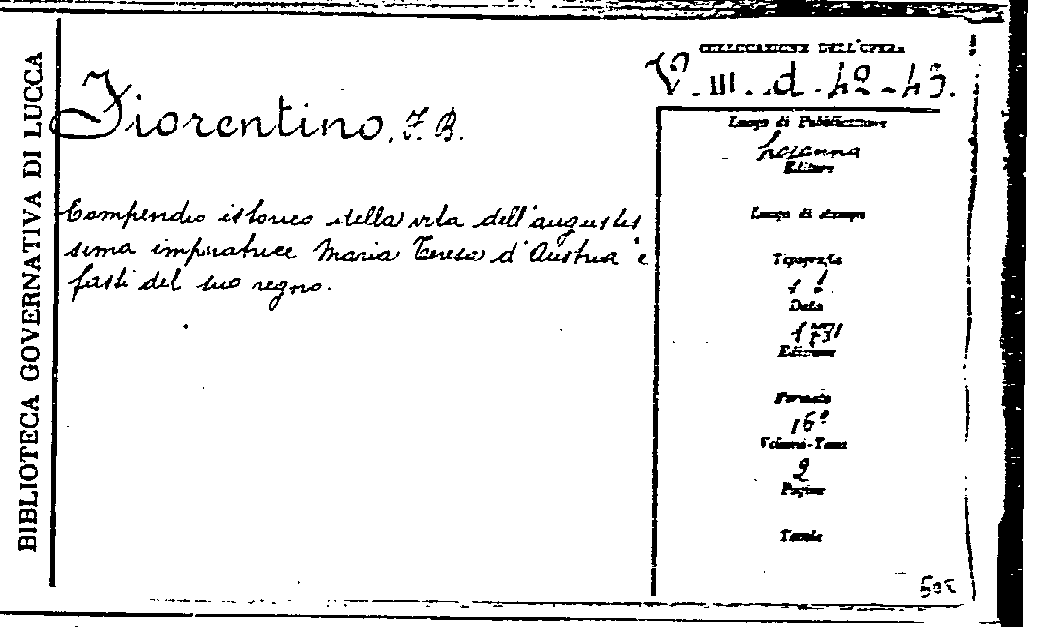 BIBLIOTECA GOVERNATIVA DI LUCCA
COLLOCAZIONE DELL'OPERA
V. III. d. 42-43.
Fiorentino, F. B.
Compendio istorico della vita dell'augustis
sima imperatrice Maria Teresa d'Austria e
fasti del suo regno.
Luogo di Pubblicazione
Losanna
Editore
Luogo di stampa
Tipografia
Data
Edizione
Formato
16°
Volumi-Tomi
2
Pagine
Tavole